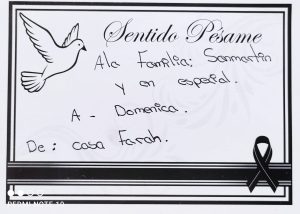 Sentido Pésame
A la Familia: Sanmartin
y en especial.
A - Domenica.
De: casa Farah.
REDMI NOTE 10